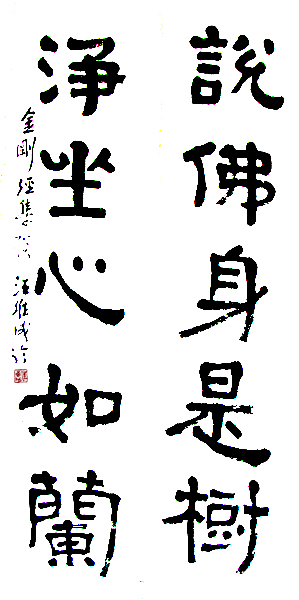 說佛身是樹
淨坐心如蘭
金剛經集
汪維